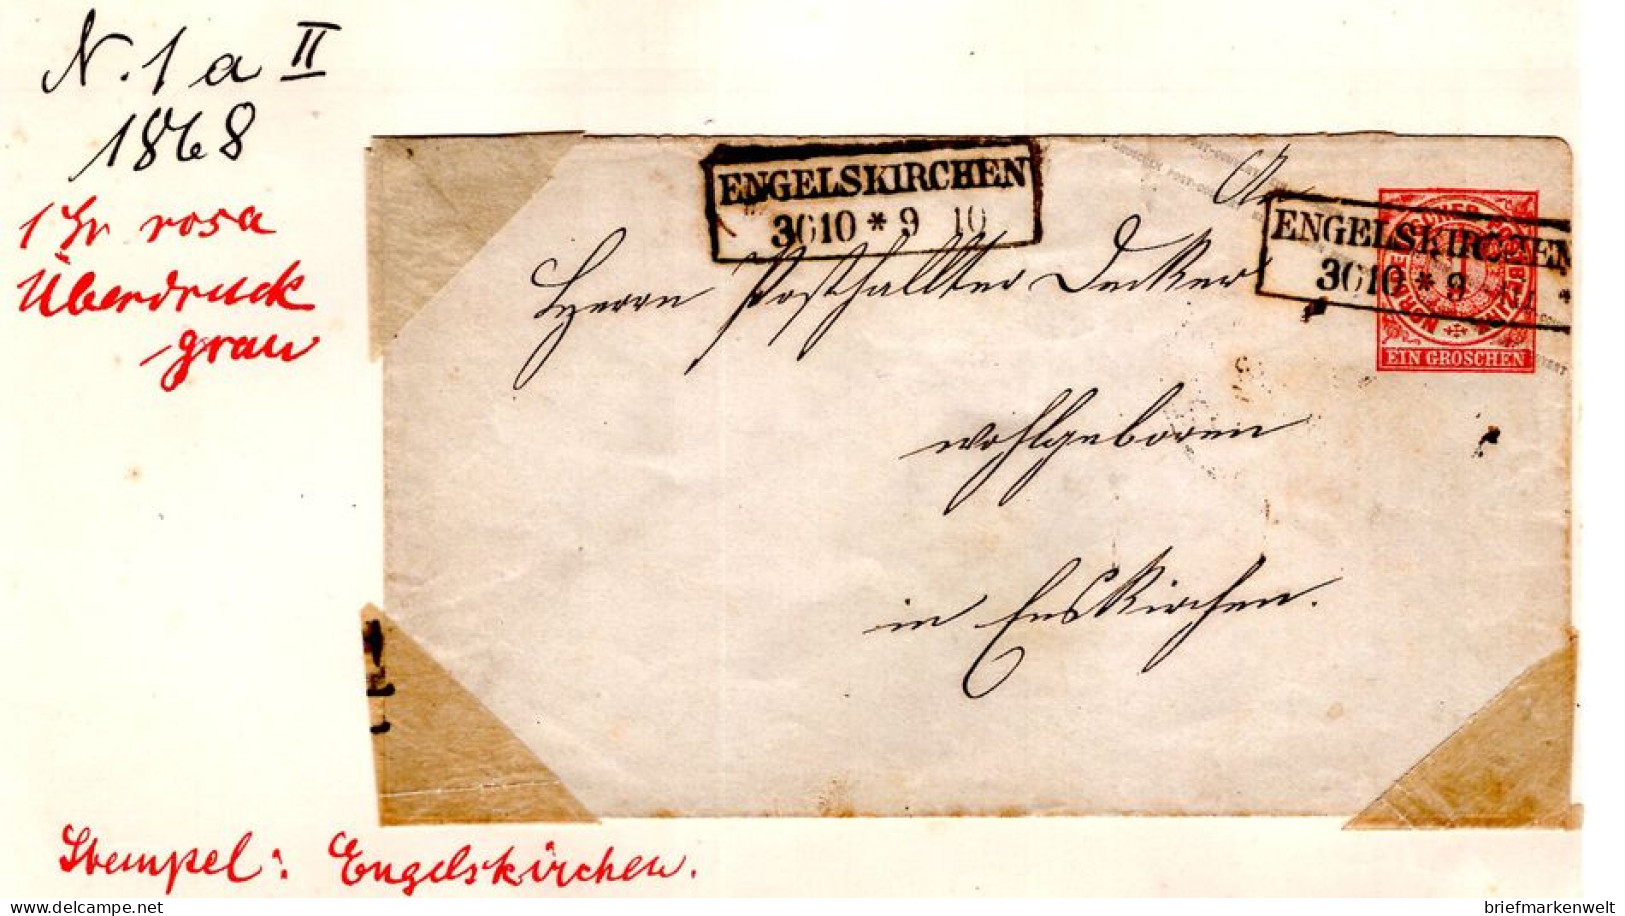 N. 1 a II
1868
1 Gr rosa
Überdruck
grau
ENGELSKIRCHEN
3010 * 9 10
An
ENGELSKIRCHEN
3010 * 9
EIN GROSCHEN
Herrn Posthallter Decker
wohlgeboren
in Enskirchen.
Stempel: Engelskirchen.
briefmarkenwelt